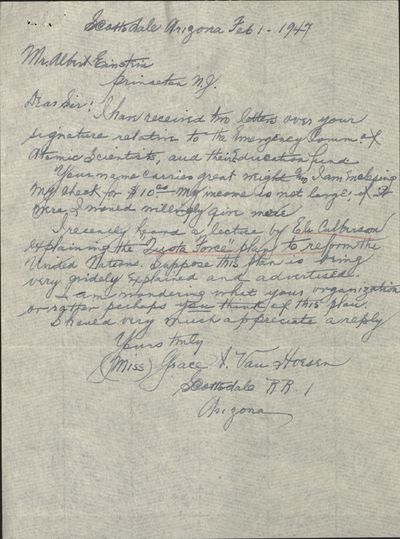 Scottsdale Arizona Feb 1 - 1947
Mr. Albert Einstein
Princeton N.J.
Dear Sir: I have received two letters over your
signature relative to the Emergency Comm. of
Atomic Scientists, and their Education fund
Your name carries great weight so I am enclosing
my check for $10.00 - My income is not large, if it
were, I would willingly give more
I recently heard a lecture by Ely Culbertson
explaining the "Quota Force" plan to reform the
United Nations. Suppose this plan is being
very widely explained and advertised.
I am wondering what your organization
or rather perhaps you think of this plan.
Should very much appreciate a reply
Yours truly
(Miss) Grace Van Hoesen
Scottsdale R.R. 1
Arizona